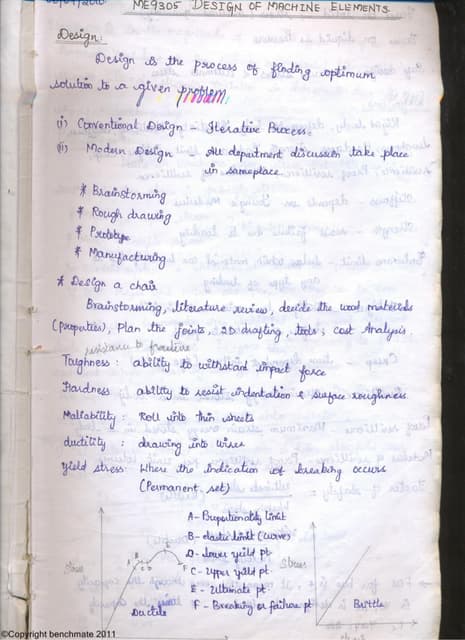 ME9305 DESIGN OF MACHINE ELEMENTS
Design:
Design is the process of finding optimum
solution to a given problem
(i) Conventional Design - Iterative Process.
(ii) Modern Design - All department discussion take place
in same place.
* Brainstorming
* Rough drawing
* Prototype
* Manufacturing
* Design a chair
Brainstorming, literature review, decide the wood materials
(properties), Plan the joints, 2D drafting, tools, cost Analysis
resistance to fracture
Toughness: ability to withstand impact force
Hardness: ability to resist indentation & surface roughness
Maliability: Roll into thin sheets
ductility: drawing into wires
Yield stress: Where the indication of breaking occurs
(Permanent set)
A - Proportionality limit
B - elastic limit (curve)
D - lower yield pt
C - Upper yield pt
E - Ultimate pt.
F - Breaking or failure pt
Stress
A
B
C
D
E
F
Ductile
Stress
Brittle
©Copyright benchmate 2011